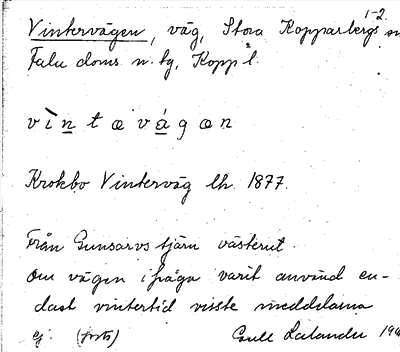 1-2.
Vintervägen, väg, Stora Kopparbergs
Falu doms. n. tg, Kopp l.
vìntəvágən
Krokbo Vinterväg lh. 1877.
Från Gunsarvs tjärn västerut.
Om vägen i fråga varit använd en-
dast vintertid visste meddelarna
ej. (forts) Lalander